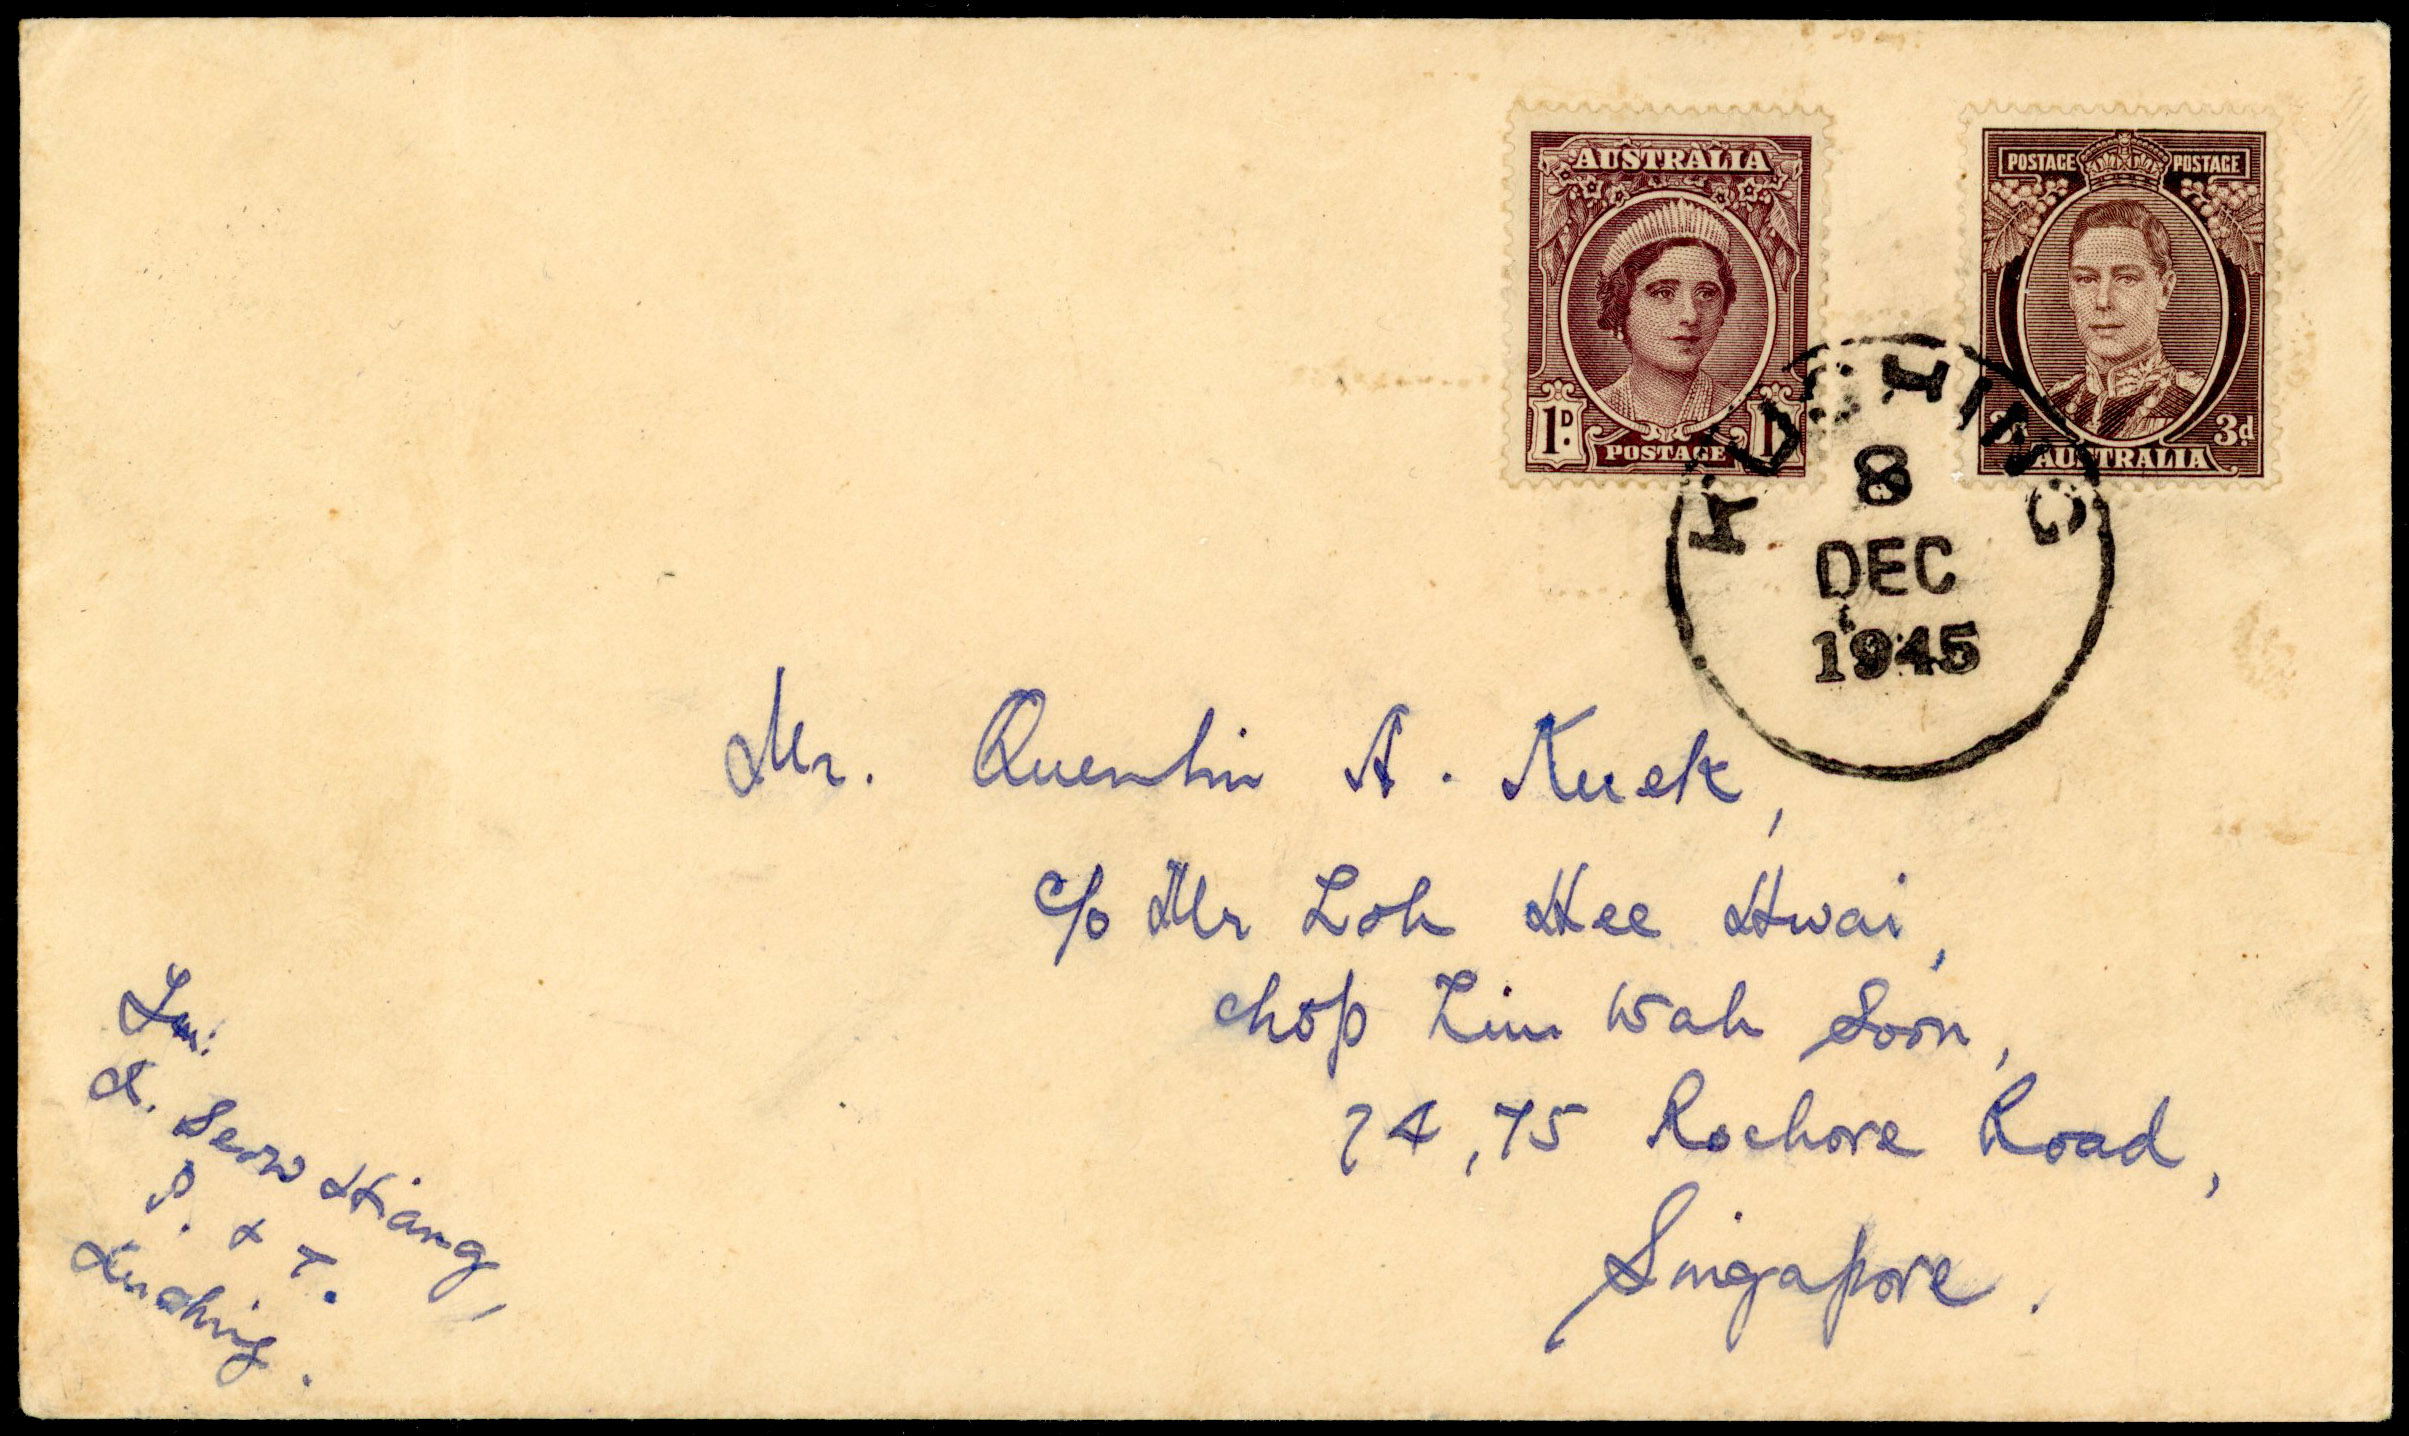 AUSTRALIA
1D.
POSTAGE
POSTAGE POSTAGE
3d
AUSTRALIA
KUCHING
8
DEC
1945
Mr. Quentin A. Kuek,
c/o Mr Loh Hee Hwai,
chop Lim Wah Soon,
74, 75 Rochore Road,
Singapore.
K. Seow Hiang,
P. & T.
Kuching.